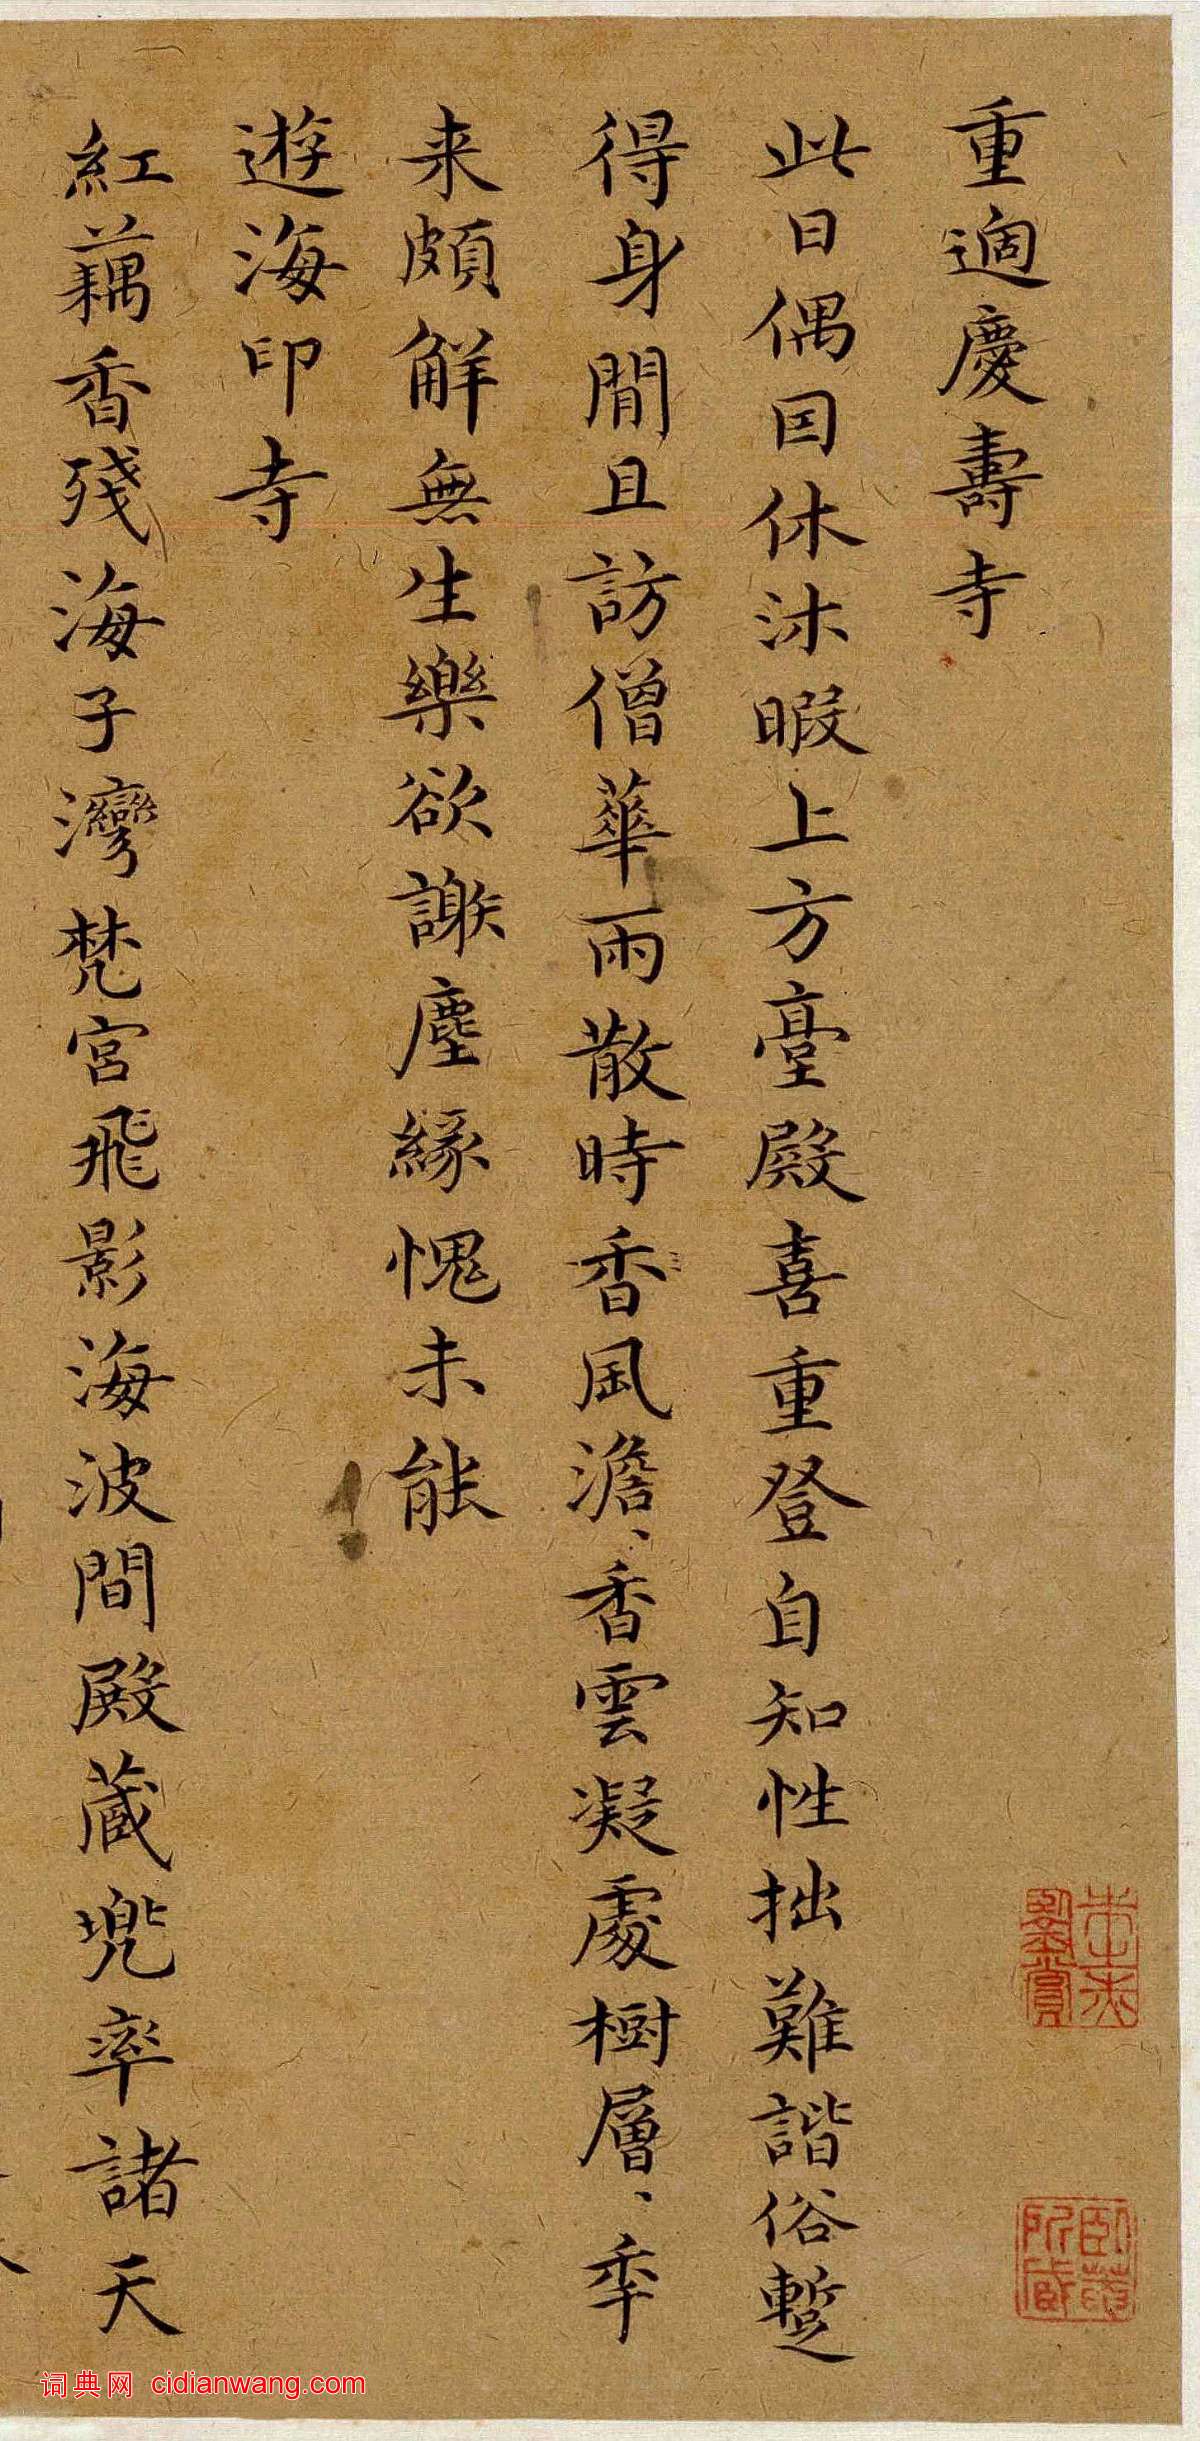 重過慶壽寺
此日偶因休沐暇上方臺殿喜重登自知性拙難諧俗暫
得身閒且訪僧華雨散時香風澹、香雲凝處樹層、季
来頗解無生樂欲謝塵緣愧未能
遊海印寺
紅藕香殘海子灣梵宮飛影海波間殿蔵兜率諸天
词典网 cidianwang.com